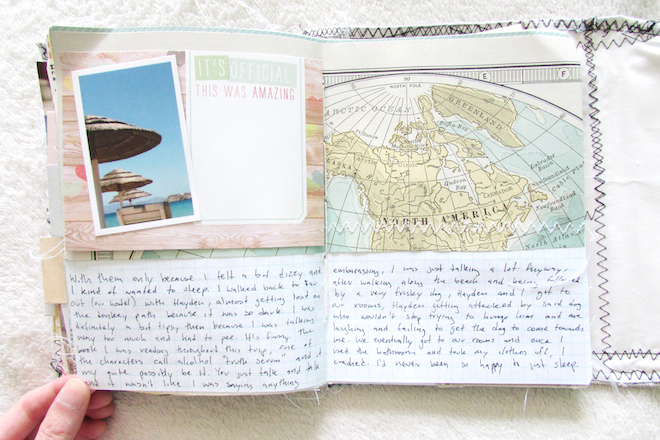 IT'S OFFICIAL
THIS WAS AMAZING
With them only because I felt a bit dizzy and
I kind of wanted to sleep. I walked back to our
out (our hotel) with Hayden, almost getting lost on
the donkey path because it was so dark. I was
definitely a bit tipsy then because I was talking
way too much and had to pee. It's funny, the
book I was reading throughout this trip, one of
the characters call alcohol "truth serum" and it
very quite possibly be it. You just talk and talk
and it wasn't like I was saying anything
90
NORTH POLE
E
F
ARCTIC OCEAN
GREENLAND
Baffin Bay
Hudson Bay
Labrador
Basin
LABRADOR
Newfoundland
Newfoundland
Basin
NORTH AMERICA
embarrassing, I was just talking a lot. Anyway,
after walking along the beach and being
by a very frisky dog, Hayden and I got to
our rooms, Hayden getting attacked by said dog
who wouldn't stop trying to hump him and me
laughing and failing to get the dog to come towards
me. We eventually got to our rooms and once I
used the bathroom and took my clothes off, I
crashed. I'd never been so happy to just sleep.